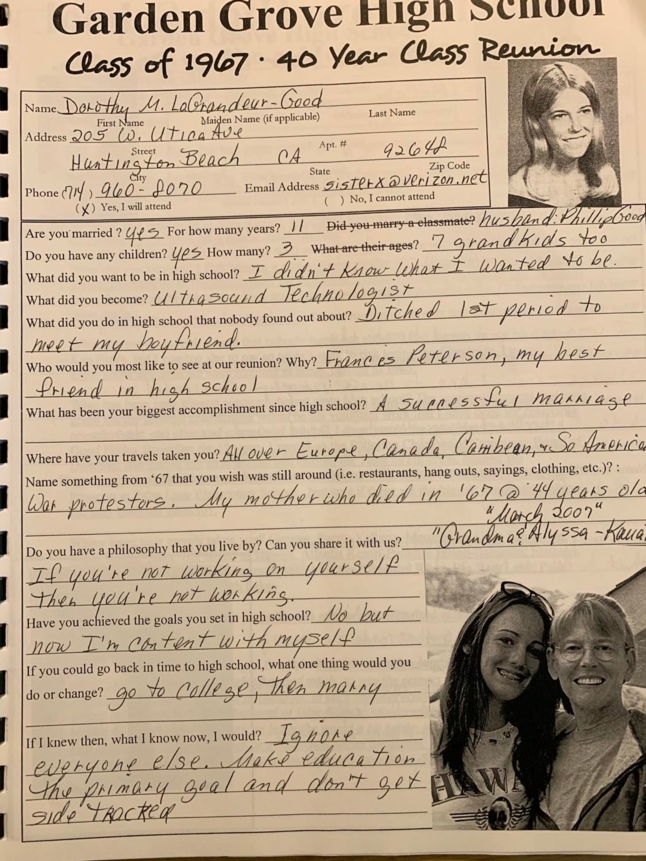 Garden Grove High School
Class of 1967 · 40 Year Class Reunion
Name Dorothy M. LaGrandeur-Good
First Name Maiden Name (if applicable) Last Name
Address 205 W. Utica Ave
Street Apt. #
Huntington Beach CA 92648
City State Zip Code
Phone (714) 960-8070 Email Address sisterx@verizon.net
(X) Yes, I will attend ( ) No, I cannot attend
Are you married? yes For how many years? 11 Did you marry a classmate? husband: Phillip Good
Do you have any children? yes How many? 3 What are their ages? 7 grandkids too
What did you want to be in high school? I didn't know what I wanted to be.
What did you become? Ultrasound Technologist
What did you do in high school that nobody found out about? Ditched 1st period to
meet my boyfriend.
Who would you most like to see at our reunion? Why? Frances Peterson, my best
friend in high school
What has been your biggest accomplishment since high school? A successful marriage
Where have your travels taken you? All over Europe, Canada, Carribean, & So America
Name something from '67 that you wish was still around (i.e. restaurants, hang outs, sayings, clothing, etc.)? :
War protestors. My mother who died in '67 @ 44 years old
"March 2007"
Do you have a philosophy that you live by? Can you share it with us? "Grandma & Alyssa - Kauai
If you're not working on yourself
then you're not working.
Have you achieved the goals you set in high school? No but
now I'm content with myself
If you could go back in time to high school, what one thing would you
do or change? go to college, then marry
If I knew then, what I know now, I would? Ignore
everyone else. Make education
the primary goal and don't get
side tracked
HAWA